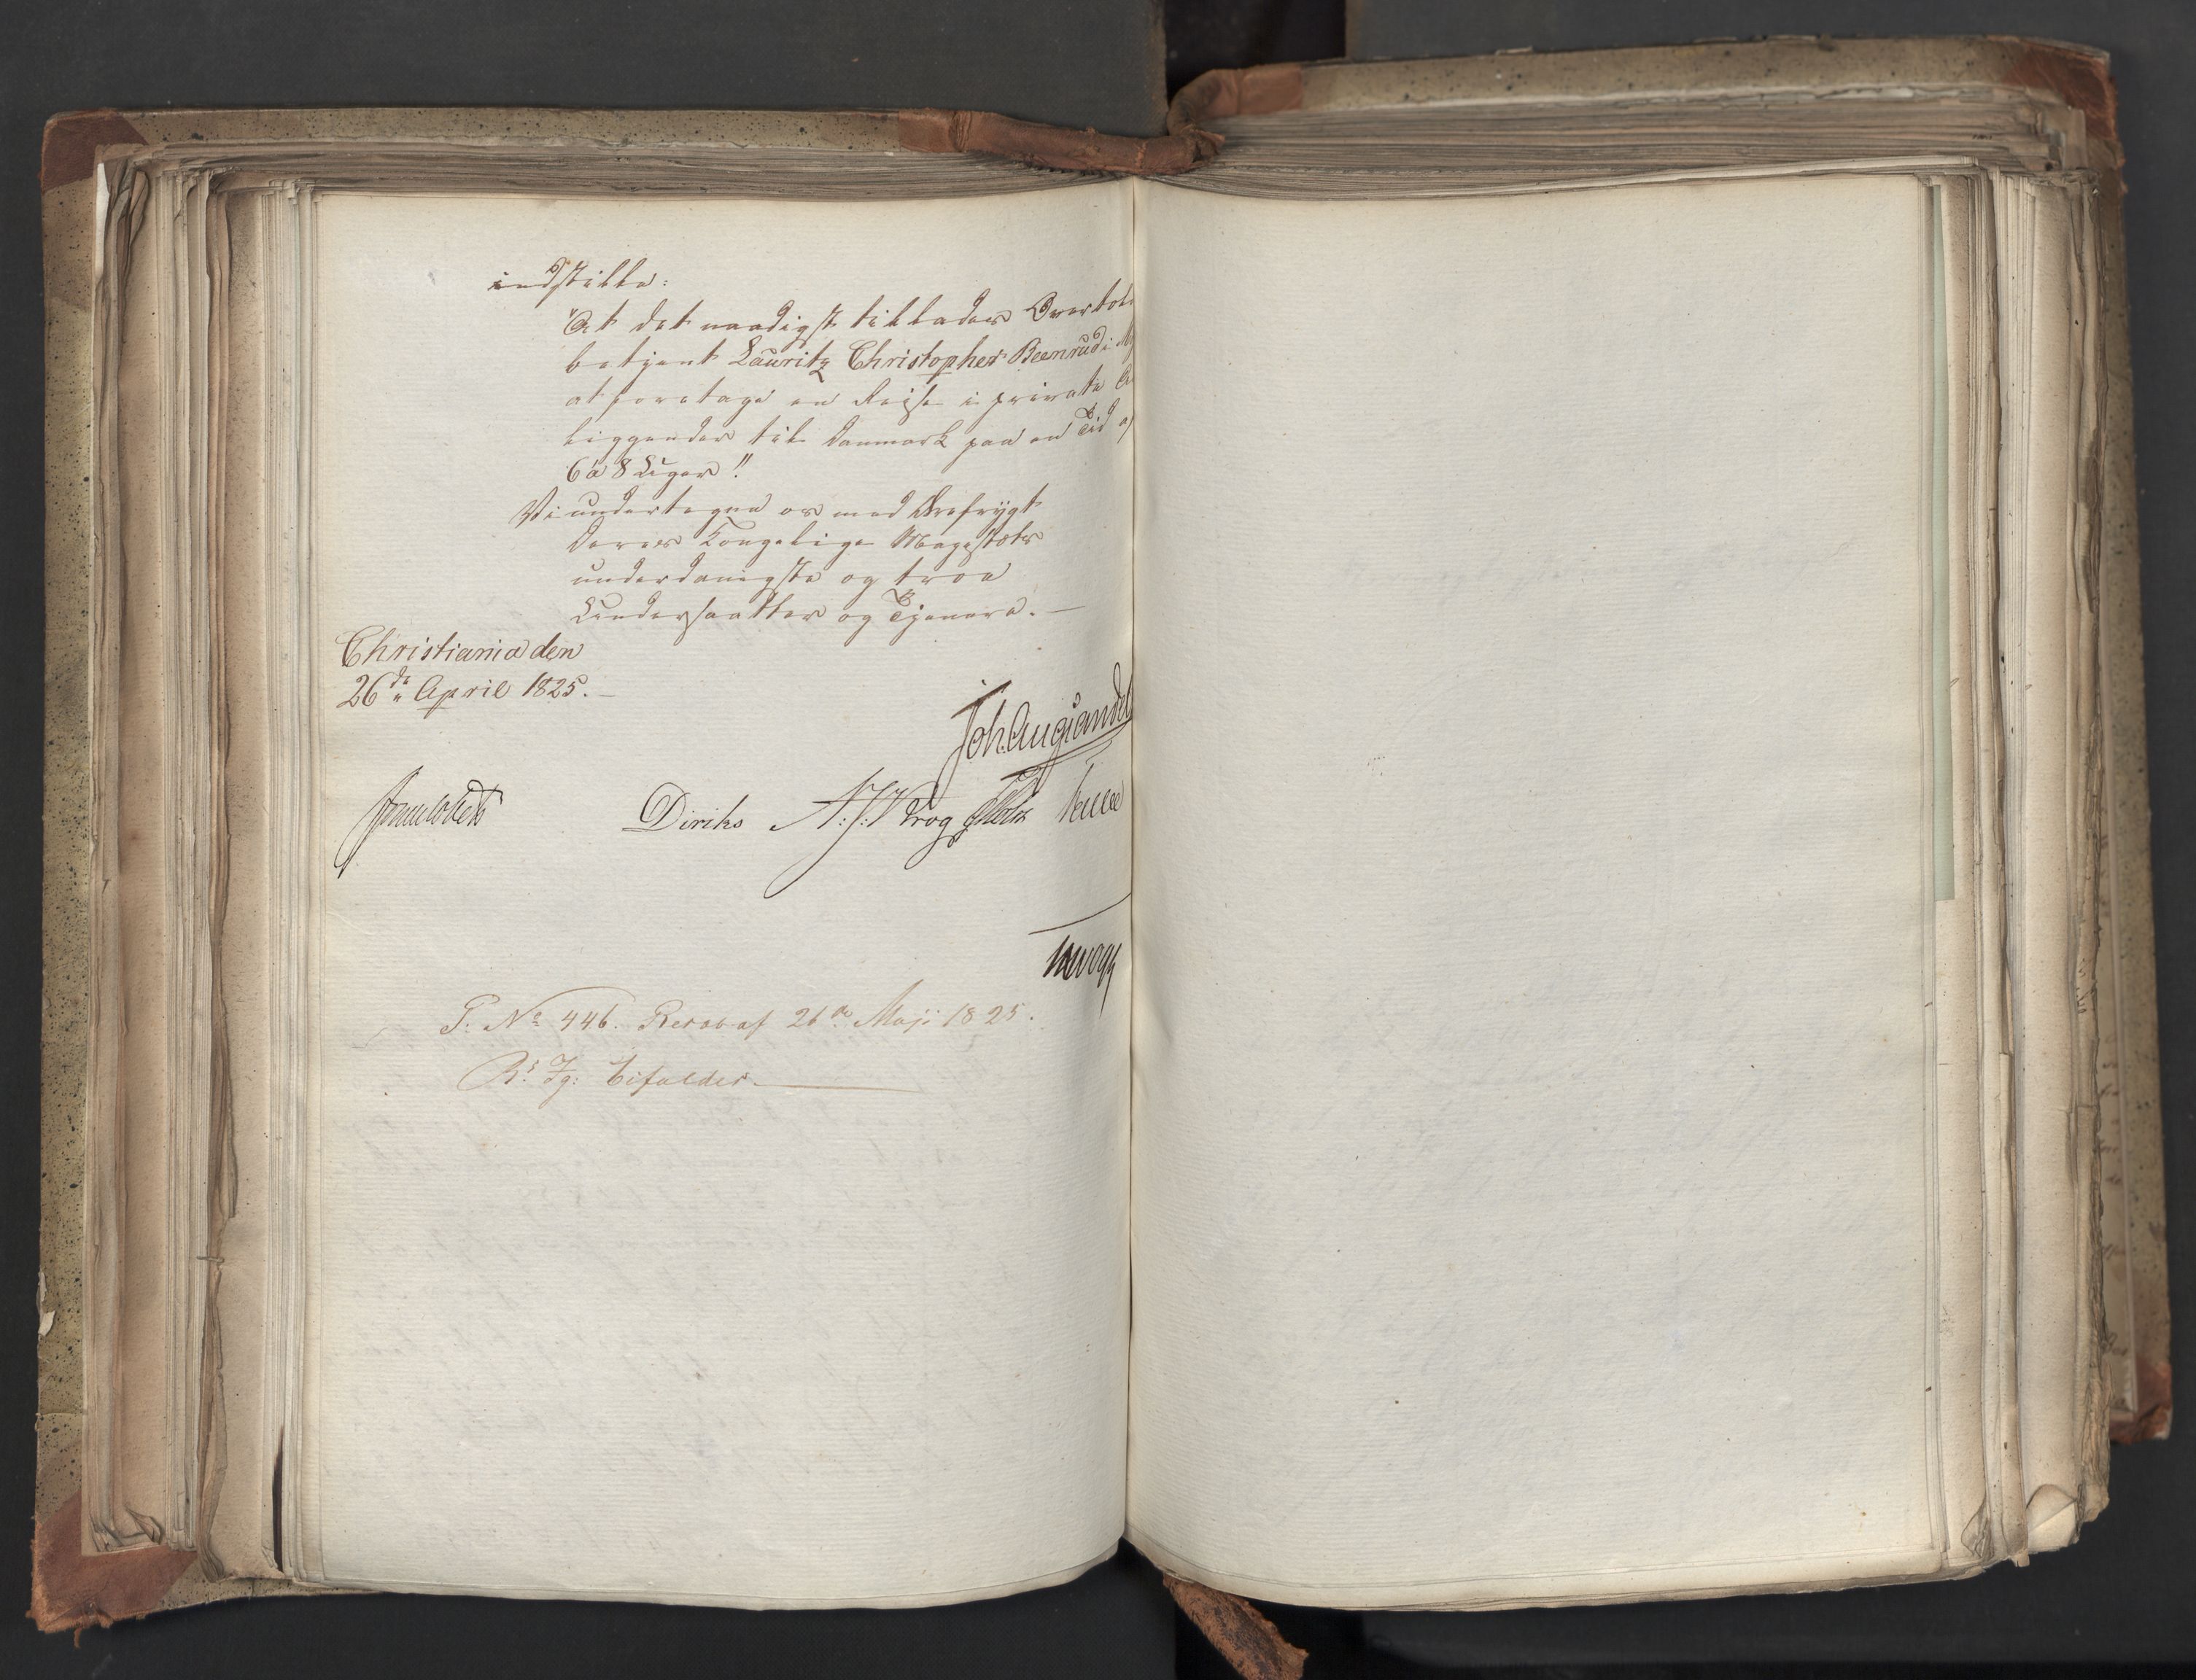 indstille:
At det naadigst tillades Overtold
betjent Lauritz Christopher Beenrud i
at foretage en Reise i private
liggender til Danmark paa en Tid af
6 à 8 Uger!!
Vi undertegne os med Ærefrygt
Deres Kongelige Majestæts
underdanigste og troe
Undersaatter og Tjenere. —
Christiania den
26de April 1825. —
Joh. Aug. Sandel
Diriks N: J: Krog
P: No 446. Resol: af 26de Maji 1825.
Rs: Ig: bifaldes. —